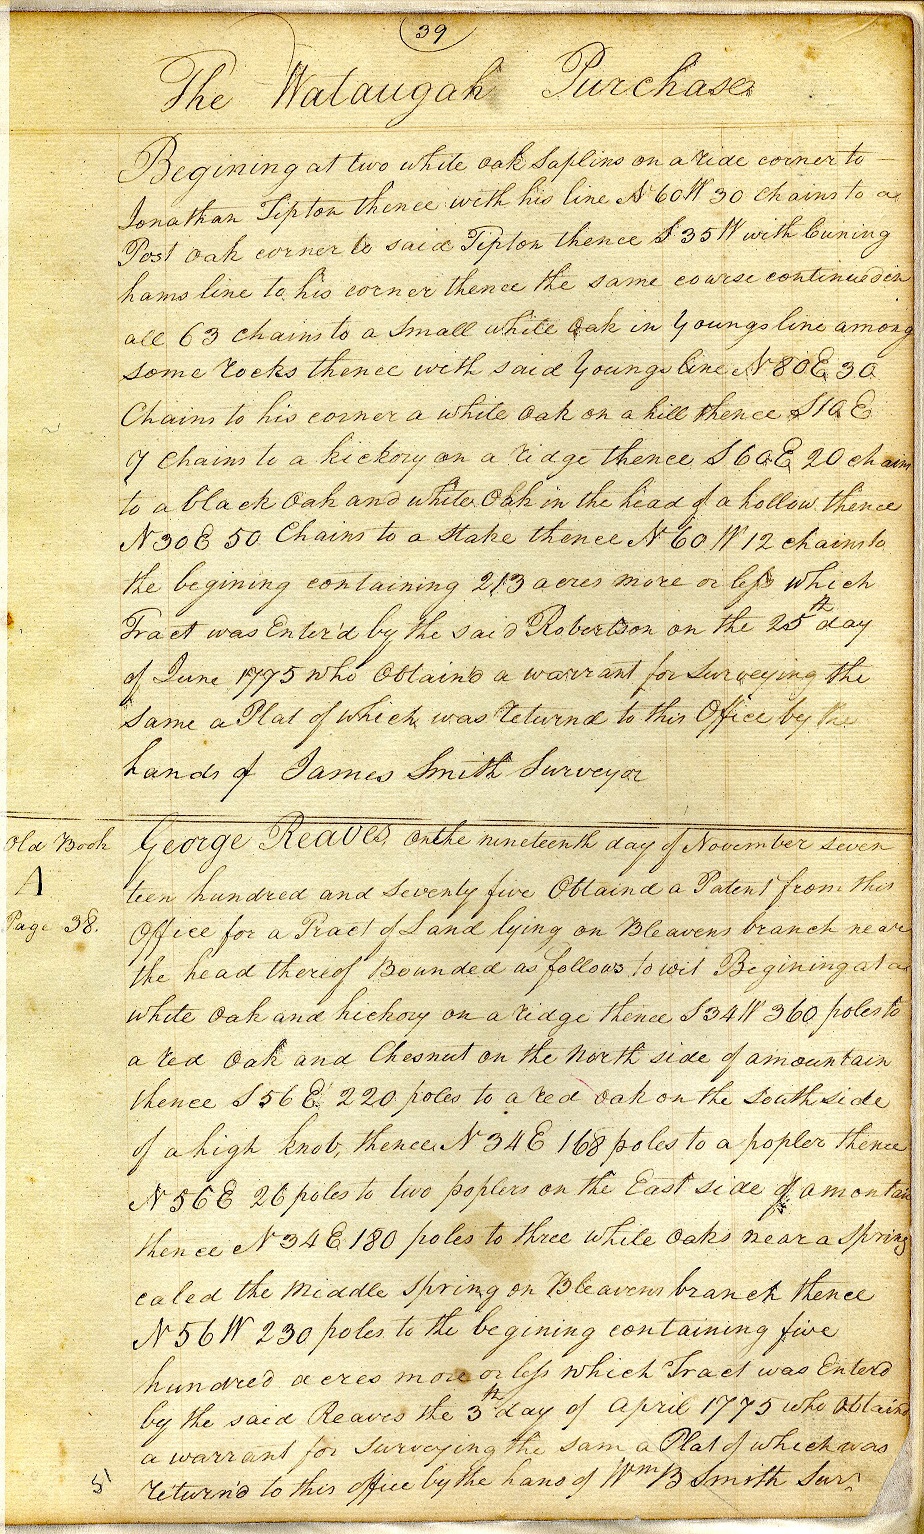 39
The Wataugah Purchase
Begining at two white oak Saplins on a ride corner to
Jonathan Tipton thence with his line N 60 W 30 chains to a
Post oak corner to said Tipton thence S 35 W with Cuning
hams line to his corner thence the same course continued in
all 63 chains to a small white oak in Youngs line among
some rocks thence with said Youngs line N 80 E 30
Chains to his corner a white oak on a hill thence S 10 E
7 chains to a hickory on a ridge thence S 60 E 20 chains
to a black oak and white oak in the head of a hollow thence
N 30 E 50 Chains to a Stake thence N 60 W 12 chains to
the begining containing 213 acres more or less which
Tract was Enter'd by the said Robertson on the 25th day
of June 1775 who Obtain'd a warrant for surveying the
same a Plat of which was returnd to this Office by the
hands of James Smith Surveyor
Old Book
A
Page 38.
George Reaves, on the nineteenth day of November seven
teen hundred and seventy five Obtaind a Patent from this
Office for a Tract of Land lying on Bleavens branch near
the head thereof Bounded as follows to wit Begining at a
white oak and hickory on a ridge thence S 34 W 360 poles to
a red oak and Chesnut on the north side of a mountain
thence S 56 E 220 poles to a red oak on the south side
of a high knob, thence N 34 E 168 poles to a popler thence
N 56 E 26 poles to two poplers on the East side of a montain
thence N 34 E 180 poles to three while oaks near a spring
caled the middle spring on Bleavens branch thence
N 56 W 230 poles to the begining containing five
hundred acres more or less which Tract was Enterd
by the said Reaves the 3th day of April 1775 who obtaind
a warrant for surveying the sam a Plat of which was
return'd to this office by the hand of Wm B Smith Sur
51